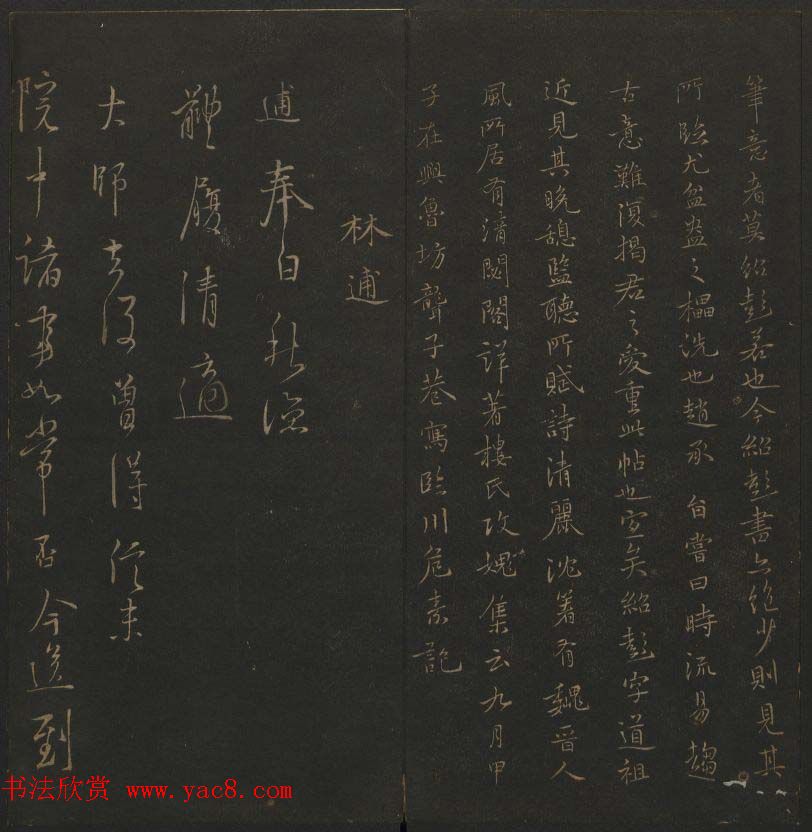 筆意者莫紹彭若也今紹彭書亦絶少則見其
所臨尤盆盎之櫑洗也趙承旨嘗曰時流易趨
古意難復楊君之愛重此帖也宜矣紹彭字道祖
近見其晚憇監聽所賦詩清麗沈著有魏晉人
風所居有清閟閣詳著樓氏攻媿集云九月甲
子在興魯坊聾子巷寓臨川危素記
林逋
逋奉白秋涼
體履清適
大師去後曾得信未
院中諸事如常否今送到
书法欣赏 www.yac8.com